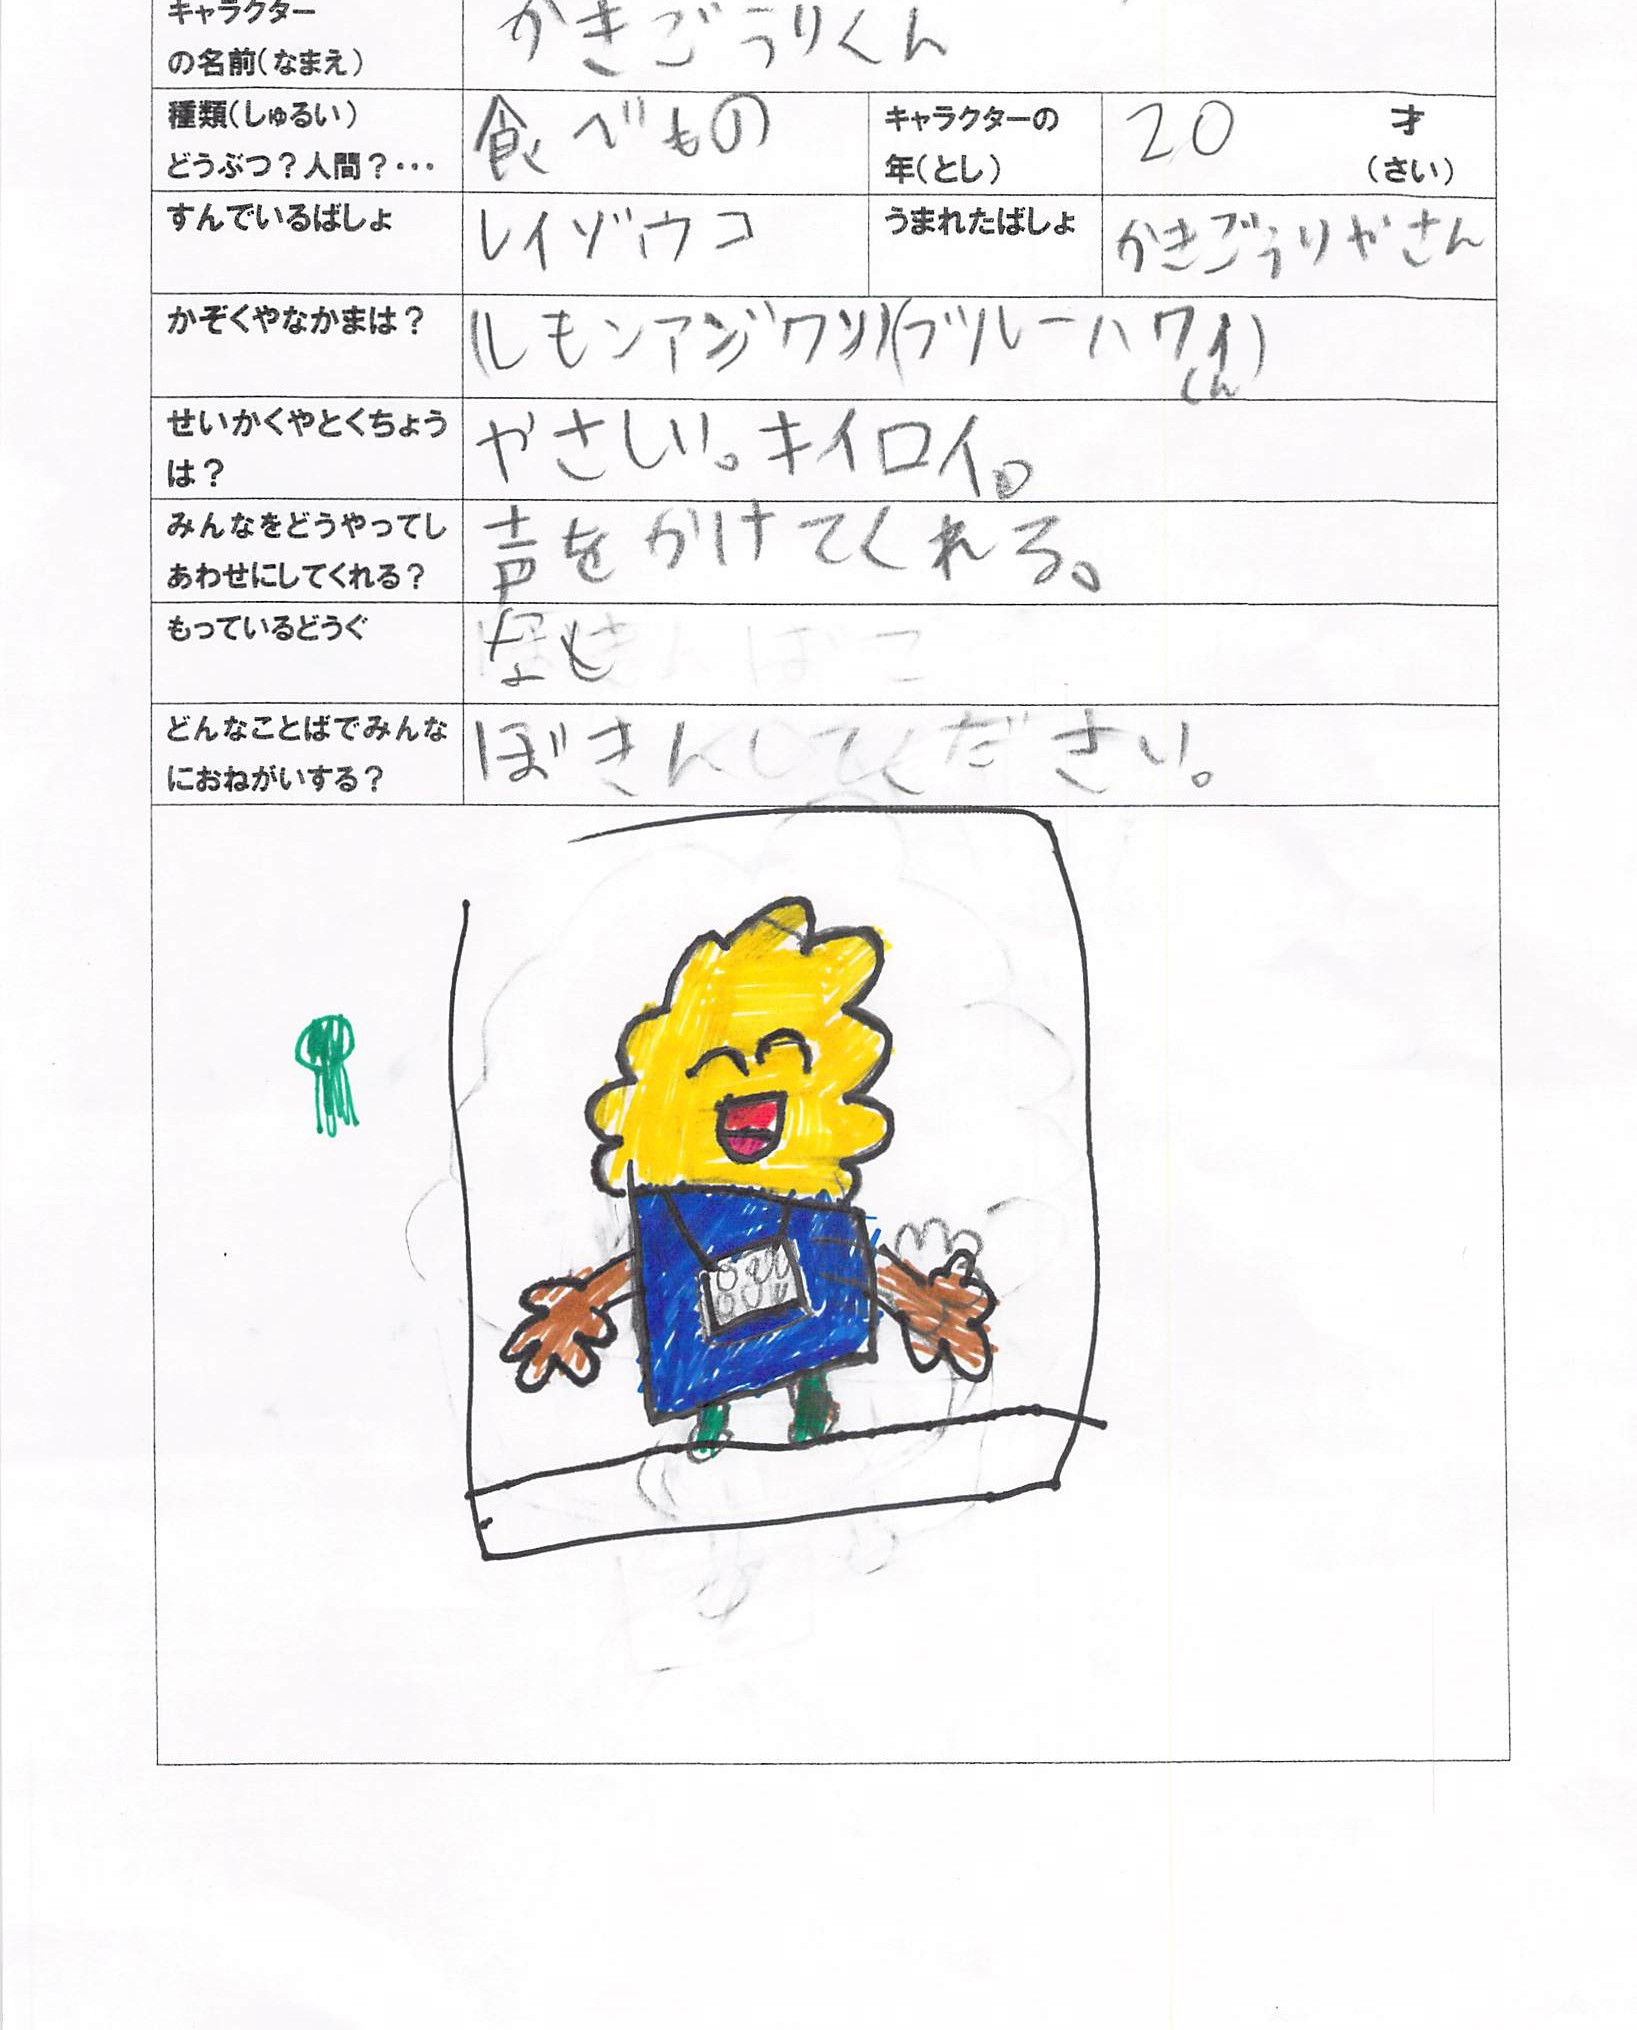 キャラクター
の名前(なまえ)
かきごうりくん
種類(しゅるい)
どうぶつ？人間？・・・
食べもの
キャラクターの
年(とし)
20 才
(さい)
すんでいるばしょ
レイゾウコ
うまれたばしょ
かきごうりやさん
かぞくやなかまは？
(レモンアジワン)(ブルーハワイ
くん)
せいかくやとくちょう
は？
やさしい。キイロイ。
みんなをどうやってし
あわせにしてくれる？
声をかけてくれる。
もっているどうぐ
どんなことばでみんな
におねがいする？
ぼきんしてください。